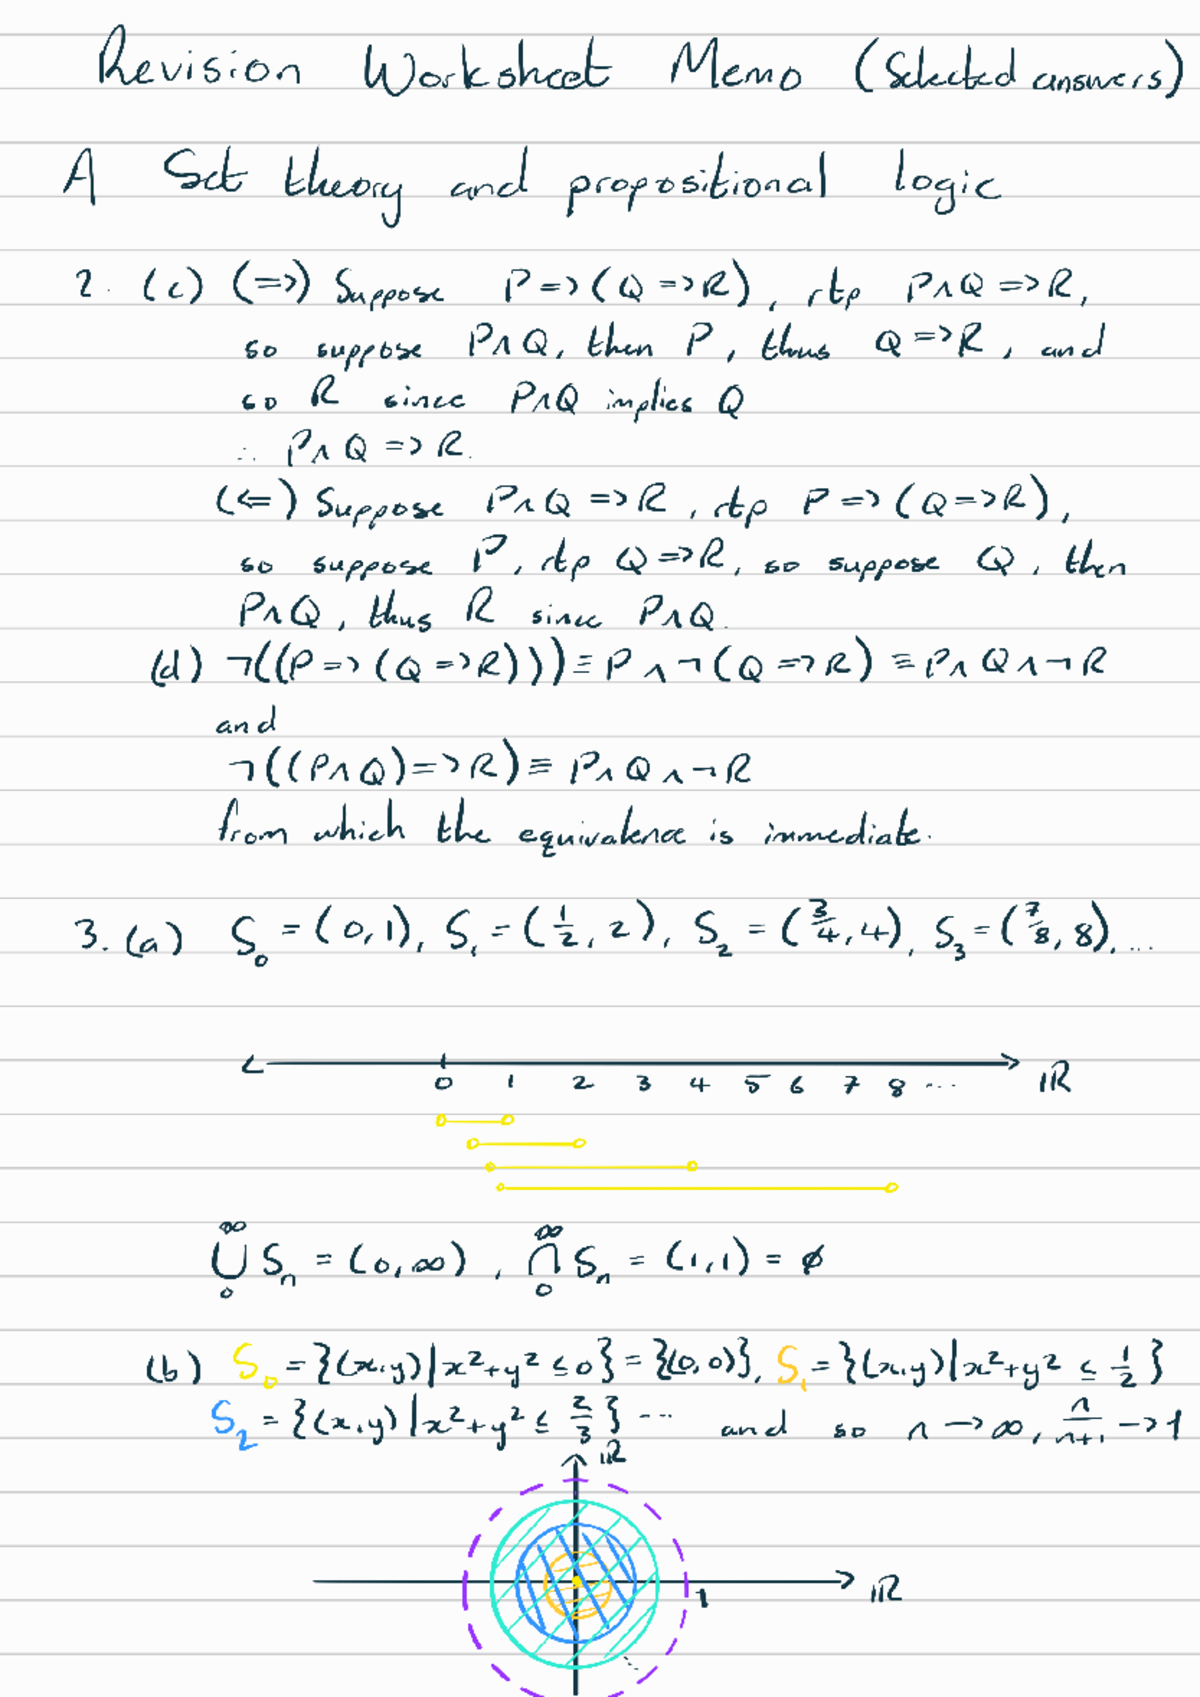 Revision Worksheet Memo (Selected answers)
A Set theory and propositional logic
2. (c) (=>) Suppose P => (Q => R), rtp P∧Q => R,
so suppose P∧Q, then P, thus Q => R, and
so R since P∧Q implies Q
∴ P∧Q => R.
(⇐) Suppose P∧Q => R, rtp P => (Q => R),
so suppose P, rtp Q => R, so suppose Q, then
P∧Q, thus R since P∧Q.
(d) ¬((P => (Q => R))) ≡ P ∧ ¬(Q => R) ≡ P∧Q∧¬R
and
¬((P∧Q) => R) ≡ P∧Q∧¬R
from which the equivalence is immediate.
3. (a) S₀ = (0,1), S₁ = (1/2, 2), S₂ = (3/4, 4), S₃ = (7/8, 8), ...
0 1 2 3 4 5 6 7 8 ... ℝ
⋃₀^∞ Sₙ = (0,∞), ⋂₀^∞ Sₙ = (1,1) = ∅
(b) S₀ = {(x,y)|x²+y² ≤ 0} = {(0,0)}, S₁ = {(x,y)|x²+y² ≤ 1/2}
S₂ = {(x,y)|x²+y² ≤ 2/3} ... and so n → ∞, n/(n+1) → 1
ℝ
ℝ
1